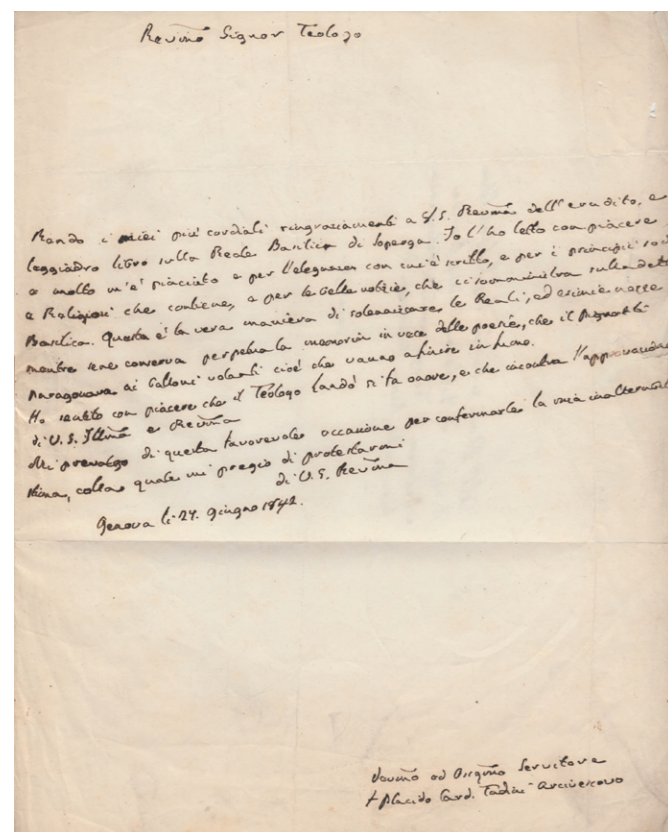 Revmo Signor Teologo
Rendo i miei più cordiali ringraziamenti a V.S. Revma dell'erudito, e
leggiadro libro sulla Reale Basilica di Soperga. Io l'ho letto con piacere
e molto m'è piaciuto e per l'eleganza con cui è scritto, e per i principii
e Religiosi che contiene, e per le belle notizie, che ci somministra sulla detta
Basilica. Questa è la vera maniera di solennizzare le Reali, ed esimie nozze
mentre se ne conserva perpetua la memoria in vece delle poesie, che il
paragonava ai balloni volanti cioè che vanno a finire in fumo.
Ho sentito con piacere che il Teologo si fa onore, e che incontra l'approvazione
di V.S. Illma e Revma
Mi prevalgo di questa favorevole occasione per confermarle la mia inalterabile
stima, colla quale mi pregio di protestarmi
di V.S. Revma
Genova li 27. giugno 1842.
Devmo ed Obbgmo Servitore
+ Placido Card. Tadini Arcivescovo